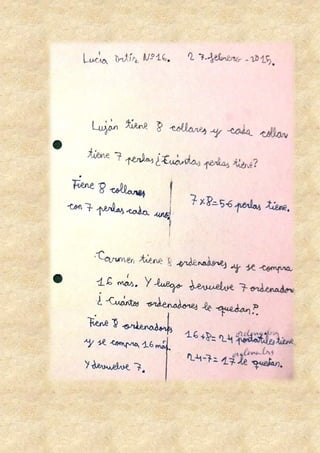 Lucía Ortíz Nº16. 27-febrero-2015.
Luján tiene 8 collares y cada collar
tiene 7 perlas ¿Cuántas perlas tiene?
Tiene 8 collares
con 7 perlas cada uno
7x8=56 perlas tiene.
Carmen tiene 8 ordenadores y se compra
16 más. Y luego devuelve 7 ordenadores
¿Cuántos ordenadores le quedan?
Tiene 8 ordenadores
y se compra 16 más.
Y devuelve 7.
ordenadores
16+8=24 portatiles tiene.
ordenadores
24-7=17 le quedan.